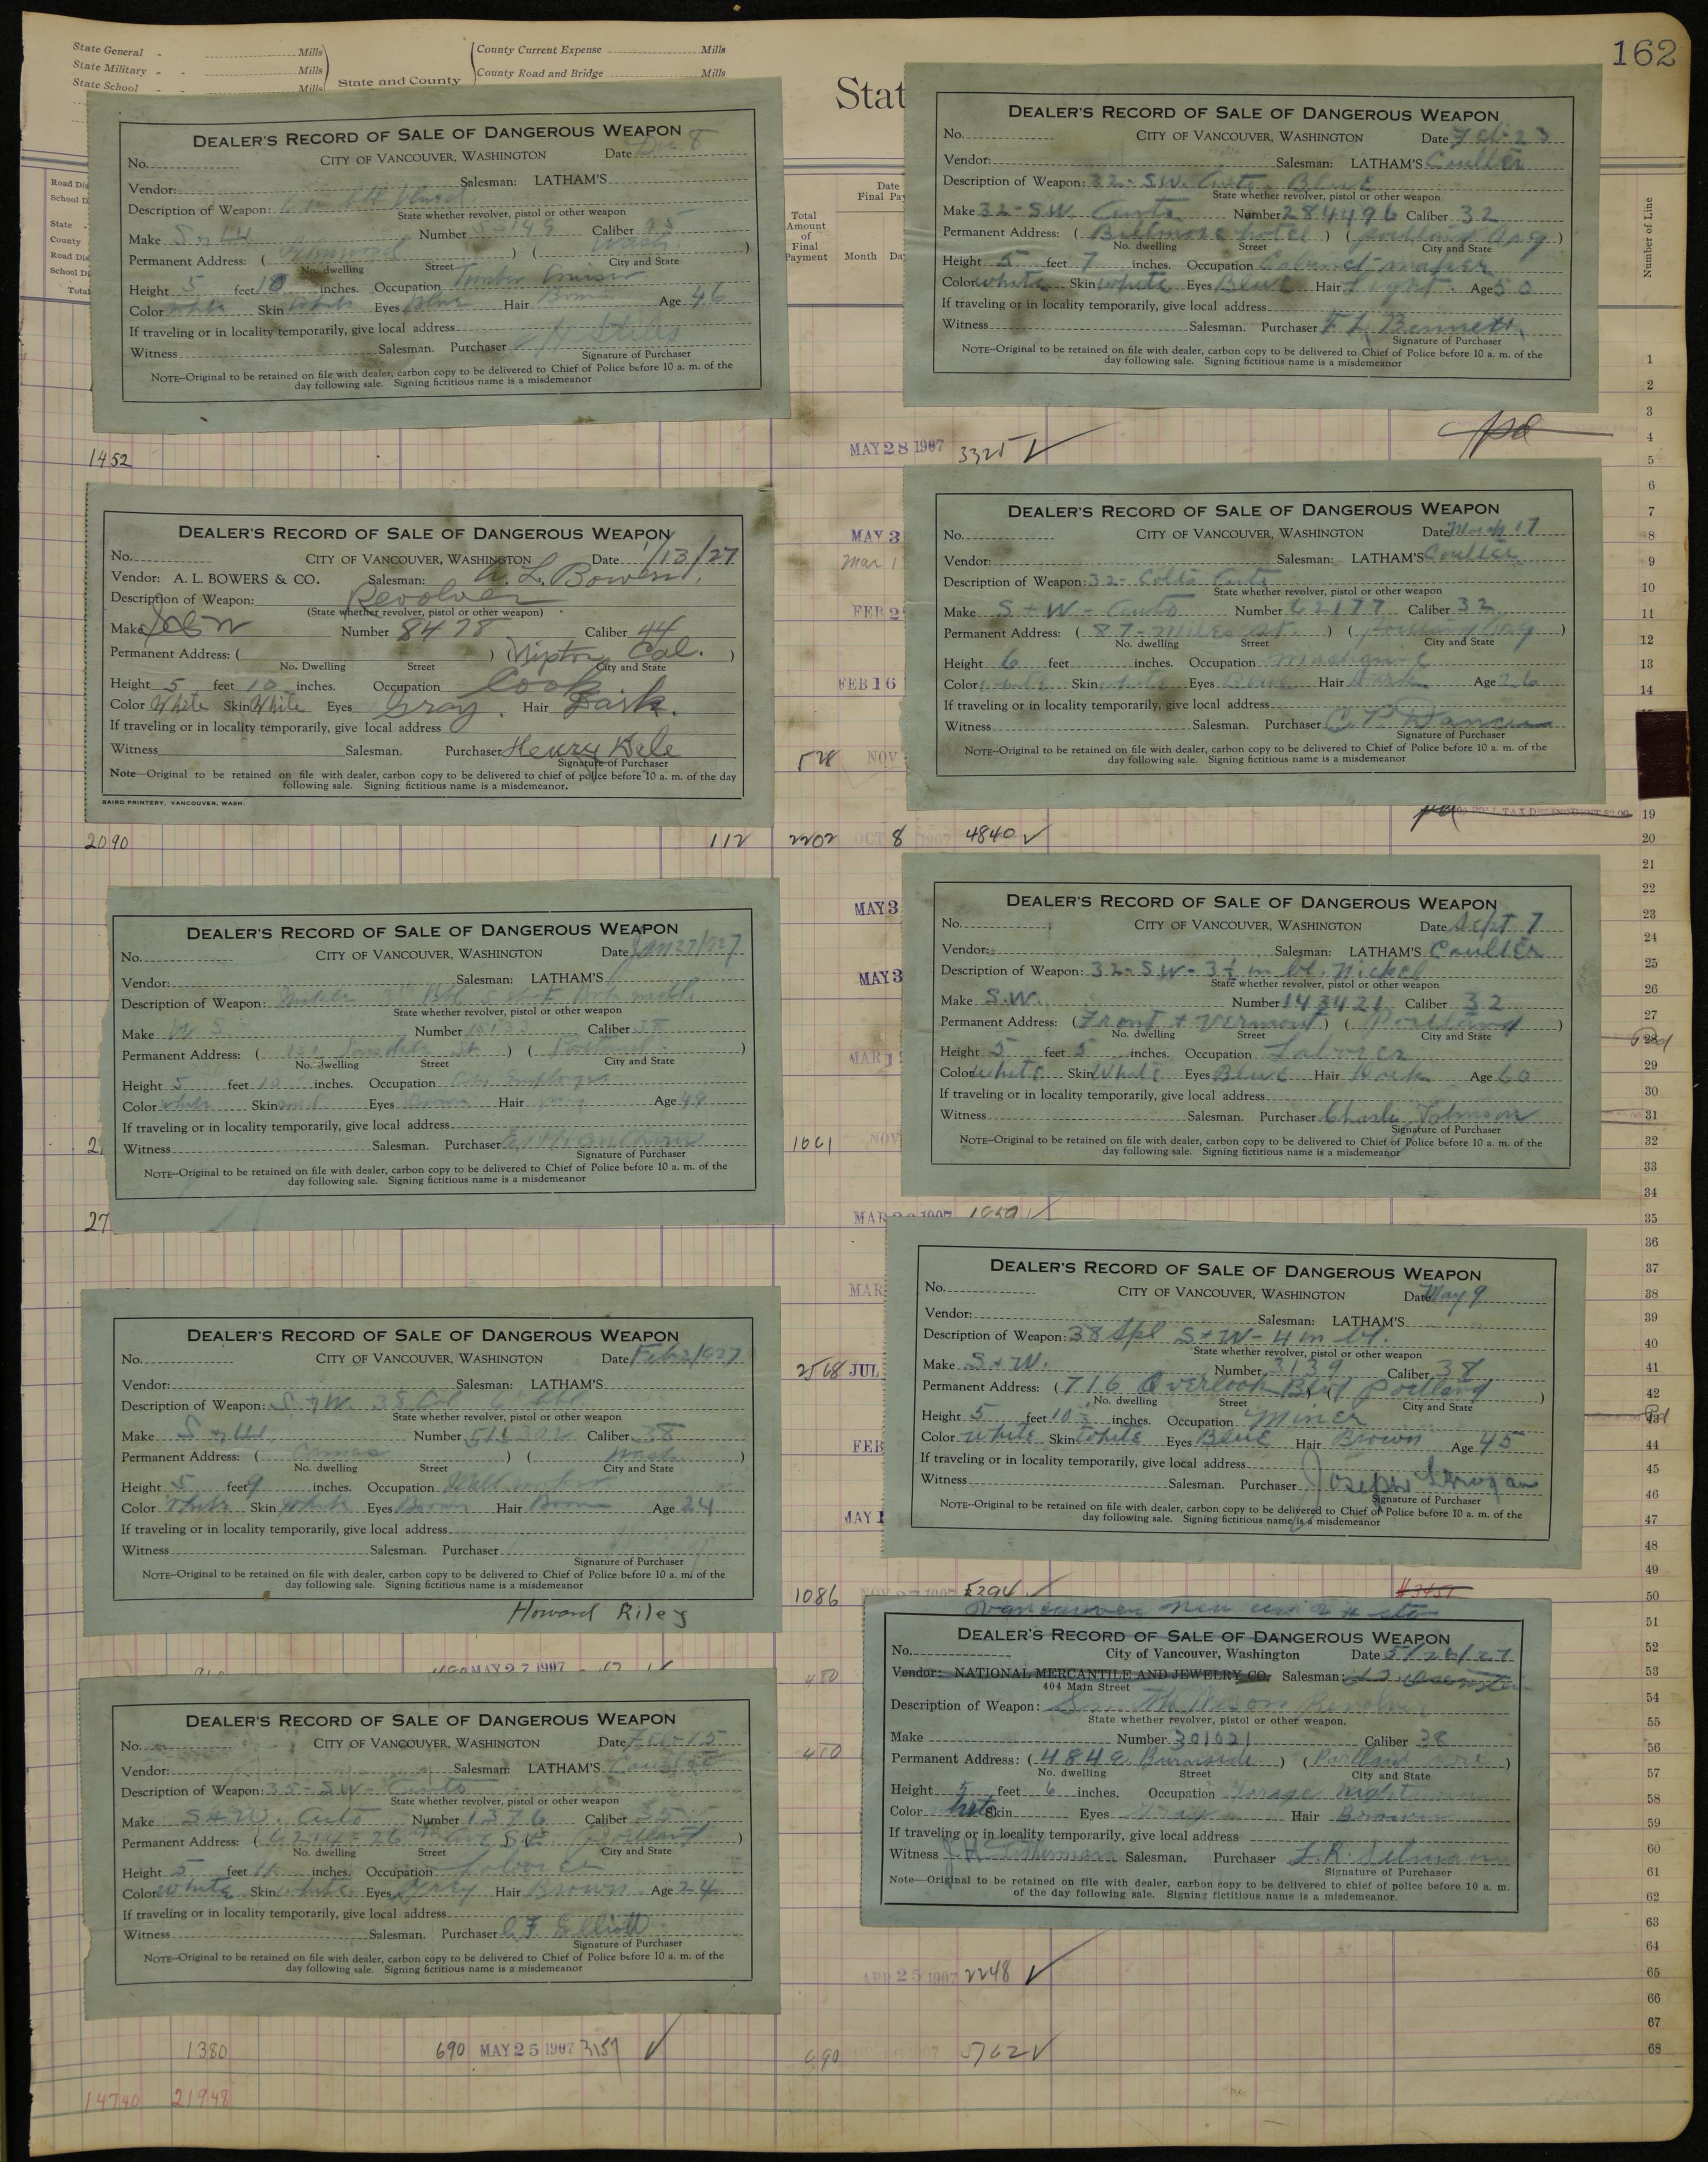 162
State General - Mills
State Military - - Mills
State School - - Mills
State and County
County Current Expense Mills
County Road and Bridge Mills
Stat
DEALER'S RECORD OF SALE OF DANGEROUS WEAPON
No. CITY OF VANCOUVER, WASHINGTON Date Dec 8
Vendor: Salesman: LATHAM'S
Description of Weapon:
State whether revolver, pistol or other weapon
Make S & W Number Caliber
Permanent Address: ( ) ( Wash. )
No. dwelling Street City and State
Height 5 feet 10 inches. Occupation Timber Cruiser
Color white Skin White Eyes blue Hair Brown Age 46
If traveling or in locality temporarily, give local address
Witness Salesman. Purchaser
Signature of Purchaser
NOTE--Original to be retained on file with dealer, carbon copy to be delivered to Chief of Police before 10 a. m. of the
day following sale. Signing fictitious name is a misdemeanor
1452
DEALER'S RECORD OF SALE OF DANGEROUS WEAPON
No. CITY OF VANCOUVER, WASHINGTON Date 1/13/27
Vendor: A. L. BOWERS & CO. Salesman: A. L. Bowers.
Description of Weapon: Revolver
(State whether revolver, pistol or other weapon)
Make S&W Number 8478 Caliber 44
Permanent Address: ( ) Nipton, Cal. )
No. Dwelling Street City and State
Height 5 feet 10 inches. Occupation Cook
Color White Skin White Eyes Gray. Hair Dark.
If traveling or in locality temporarily, give local address
Witness Salesman. Purchaser Henry Dale
Signature of Purchaser
Note--Original to be retained on file with dealer, carbon copy to be delivered to chief of police before 10 a. m. of the day
following sale. Signing fictitious name is a misdemeanor.
BAIRD PRINTERY, VANCOUVER, WASH.
2090 112 2202 OCT 8 1907 4840
DEALER'S RECORD OF SALE OF DANGEROUS WEAPON
No. CITY OF VANCOUVER, WASHINGTON Date Jan 27/1927
Vendor: Salesman: LATHAM'S
Description of Weapon:
State whether revolver, pistol or other weapon
Make Number Caliber 38
Permanent Address: ( St ) ( Portland. )
No. dwelling Street City and State
Height 5 feet 10 inches. Occupation City Employe
Color white Skin Eyes Brown Hair gray Age 48
If traveling or in locality temporarily, give local address
Witness Salesman. Purchaser
Signature of Purchaser
NOTE--Original to be retained on file with dealer, carbon copy to be delivered to Chief of Police before 10 a. m. of the
day following sale. Signing fictitious name is a misdemeanor
27
DEALER'S RECORD OF SALE OF DANGEROUS WEAPON
No. CITY OF VANCOUVER, WASHINGTON Date Feb 2/1927
Vendor: Salesman: LATHAM'S
Description of Weapon: S & W. 38 Cal
State whether revolver, pistol or other weapon
Make S & W. Number 511302 Caliber 38
Permanent Address: ( Camas ) ( Wash )
No. dwelling Street City and State
Height 5 feet 9 inches. Occupation
Color White Skin White Eyes Brown Hair Brown Age 24
If traveling or in locality temporarily, give local address
Witness Salesman. Purchaser
Signature of Purchaser
NOTE--Original to be retained on file with dealer, carbon copy to be delivered to Chief of Police before 10 a. m. of the
day following sale. Signing fictitious name is a misdemeanor
Howard Riley
MAY 27 1907
DEALER'S RECORD OF SALE OF DANGEROUS WEAPON
No. CITY OF VANCOUVER, WASHINGTON Date Feb-15
Vendor: Salesman: LATHAM'S Coulter
Description of Weapon: 35-SW-Auto
State whether revolver, pistol or other weapon
Make S&W. Auto Number 1376 Caliber 35
Permanent Address: ( 6214-26 Ave SE Portland )
No. dwelling Street City and State
Height 5 feet 11 inches. Occupation Laborer
Color white Skin white Eyes Grey Hair Brown Age 24
If traveling or in locality temporarily, give local address
Witness Salesman. Purchaser C. F. Elliott
Signature of Purchaser
NOTE--Original to be retained on file with dealer, carbon copy to be delivered to Chief of Police before 10 a. m. of the
day following sale. Signing fictitious name is a misdemeanor
1380 690 MAY 25 1907 3157 690 5762
14740 21948
DEALER'S RECORD OF SALE OF DANGEROUS WEAPON
No. CITY OF VANCOUVER, WASHINGTON Date Feb-23
Vendor: Salesman: LATHAM'S Coulter
Description of Weapon: 32-S.W. Auto. Blue
State whether revolver, pistol or other weapon
Make 32-SW Auto Number 284496 Caliber 32
Permanent Address: ( Biltmore hotel ) ( portland Org )
No. dwelling Street City and State
Height 5 feet 7 inches. Occupation Cabinet-maker
Color white Skin white Eyes Blue Hair Light. Age 50
If traveling or in locality temporarily, give local address
Witness Salesman. Purchaser F L Bennett
Signature of Purchaser
NOTE--Original to be retained on file with dealer, carbon copy to be delivered to Chief of Police before 10 a. m. of the
day following sale. Signing fictitious name is a misdemeanor
MAY 28 1907 3325 pd
DEALER'S RECORD OF SALE OF DANGEROUS WEAPON
No. CITY OF VANCOUVER, WASHINGTON Date March 17
Vendor: Salesman: LATHAM'S Coulter
Description of Weapon: 32- Colts Auto
State whether revolver, pistol or other weapon
Make S + W - Auto Number 62177 Caliber 32
Permanent Address: ( 87-Miles St. ) ( portland Org )
No. dwelling Street City and State
Height 6 feet inches. Occupation
Color white Skin white Eyes Blue Hair Dark Age 26
If traveling or in locality temporarily, give local address
Witness Salesman. Purchaser
Signature of Purchaser
NOTE--Original to be retained on file with dealer, carbon copy to be delivered to Chief of Police before 10 a. m. of the
day following sale. Signing fictitious name is a misdemeanor
DEALER'S RECORD OF SALE OF DANGEROUS WEAPON
No. CITY OF VANCOUVER, WASHINGTON Date Sept 7
Vendor: Salesman: LATHAM'S Coulter
Description of Weapon: 32-SW-3½ in bl. nickel
State whether revolver, pistol or other weapon
Make S.W. Number 143421 Caliber 32
Permanent Address: ( Front + Vermont ) ( Portland )
No. dwelling Street City and State
Height 5 feet 5 inches. Occupation Laborer
Color white Skin White Eyes Blue Hair Dark Age 60
If traveling or in locality temporarily, give local address
Witness Salesman. Purchaser Charles Johnson
Signature of Purchaser
NOTE--Original to be retained on file with dealer, carbon copy to be delivered to Chief of Police before 10 a. m. of the
day following sale. Signing fictitious name is a misdemeanor
DEALER'S RECORD OF SALE OF DANGEROUS WEAPON
No. CITY OF VANCOUVER, WASHINGTON Date May 9
Vendor: Salesman: LATHAM'S
Description of Weapon: 38 Spl S+W-4 in bl.
State whether revolver, pistol or other weapon
Make S+W. Number 3139 Caliber 38
Permanent Address: ( 716 Overlook Blvd Portland )
No. dwelling Street City and State
Height 5 feet 10½ inches. Occupation Miner
Color white Skin White Eyes Blue Hair Brown Age 45
If traveling or in locality temporarily, give local address
Witness Salesman. Purchaser Joseph
Signature of Purchaser
NOTE--Original to be retained on file with dealer, carbon copy to be delivered to Chief of Police before 10 a. m. of the
day following sale. Signing fictitious name is a misdemeanor
1086 5294
DEALER'S RECORD OF SALE OF DANGEROUS WEAPON
No. City of Vancouver, Washington Date 5/26/27
Vendor: NATIONAL MERCANTILE AND JEWELRY CO. Salesman:
404 Main Street
Description of Weapon: Smith Wesson Revolver
State whether revolver, pistol or other weapon.
Make Number 301021 Caliber 38
Permanent Address: ( 484 E. Burnside ) ( Portland Ore )
No. dwelling Street City and State
Height 5 feet 6 inches. Occupation Garage Nightman
Color white Skin Eyes Gray Hair Brown
If traveling or in locality temporarily, give local address
Witness Salesman. Purchaser L. R. Selman
Signature of Purchaser
Note--Original to be retained on file with dealer, carbon copy to be delivered to chief of police before 10 a. m.
of the day following sale. Signing fictitious name is a misdemeanor.
APR 25 1907 2248